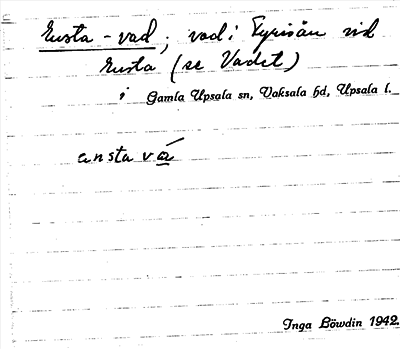 Ensta-vad; vad i Fyrisån vid
Ensta (se Vadet)
i Gamla Upsala sn, Vaksala hd, Upsala l.
ensta vá
Inga Löwdin 1942.